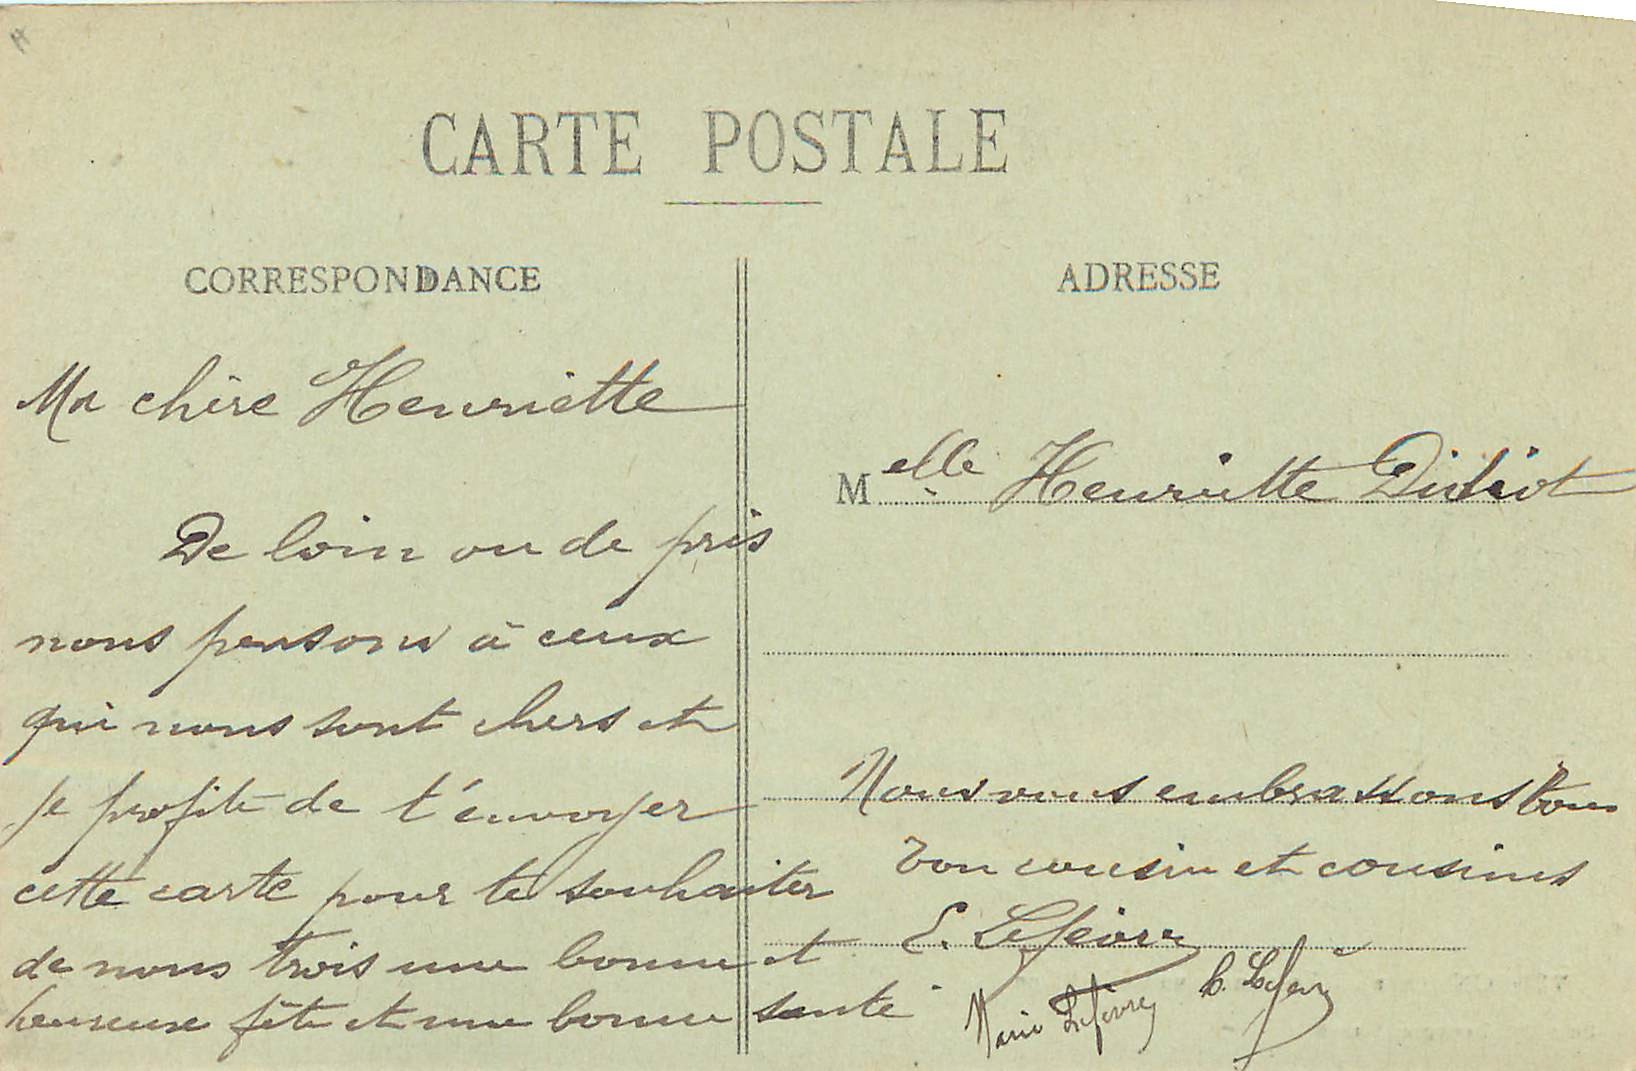 CARTE POSTALE
CORRESPONDANCE
Ma chère Henriette
De loin ou de près
nous pensons à ceux
qui nous sont chers et
je profite de t'envoyer
cette carte pour te souhaiter
de nous trois une bonne et
heureuse fête et une bonne santé
ADRESSE
Melle Henriette Didiot
Nous vous embrassons tous
Ton cousin et cousines
E. Lefèvre
Marie Lefèvre
Lefèvre